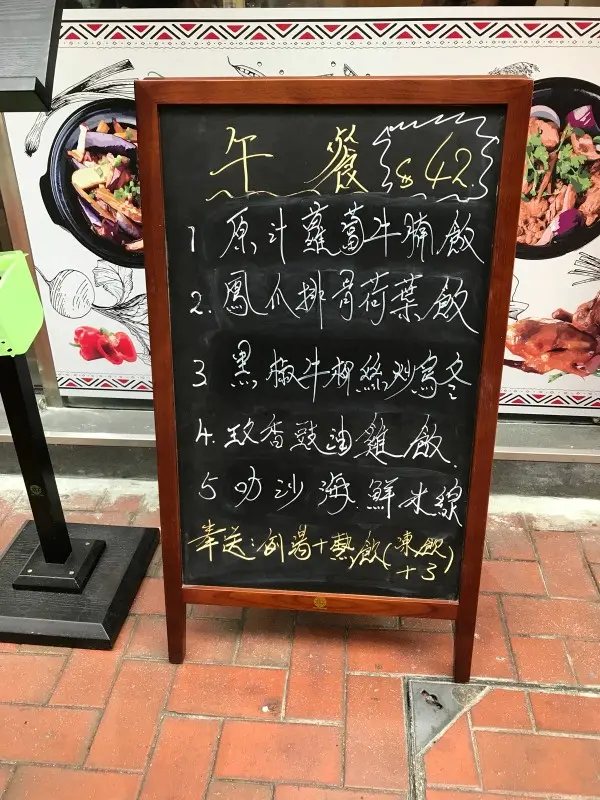 午餐 $42
1 原汁蘿蔔牛腩飯
2. 鳳爪排骨荷葉飯
3 黑椒牛柳絲炒烏冬
4. 玫香豉油雞飯.
5 叻沙海鮮米線
奉送:例湯+熱飲(凍飲+3)